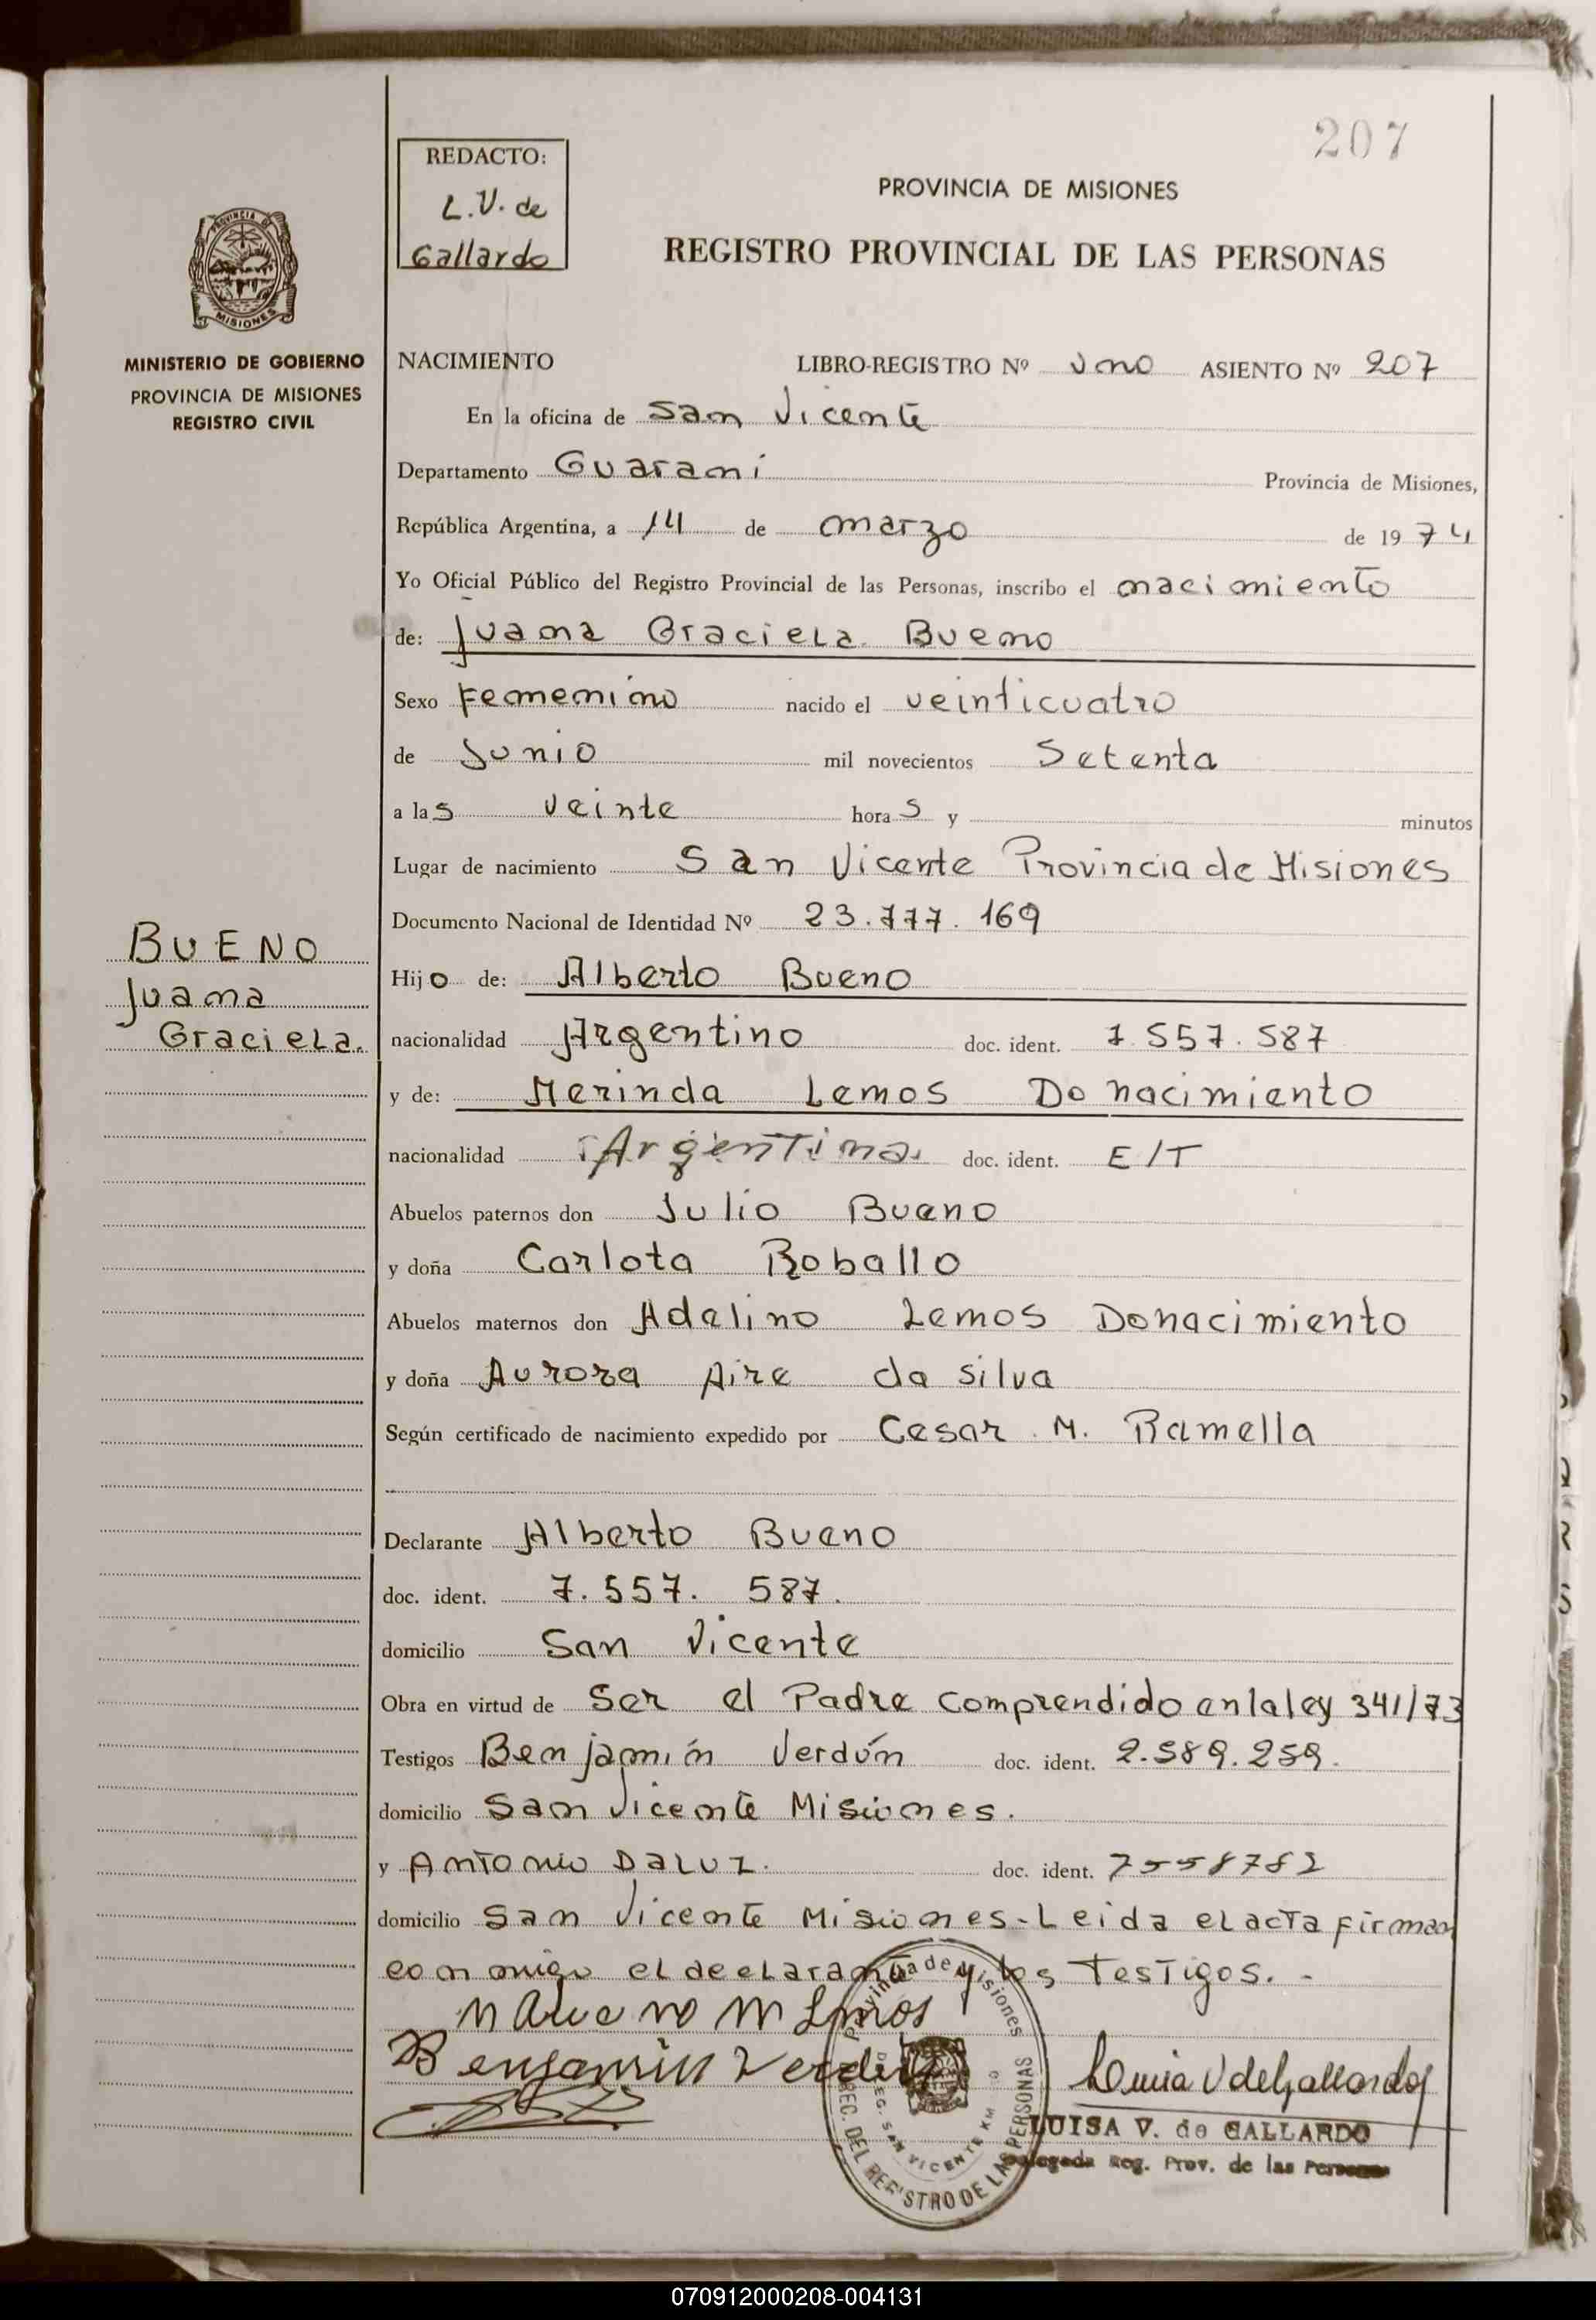 207
REDACTO:
L.V. de
Gallardo
PROVINCIA DE MISIONES
REGISTRO PROVINCIAL DE LAS PERSONAS
PROVINCIA DE
MISIONES
MINISTERIO DE GOBIERNO
PROVINCIA DE MISIONES
REGISTRO CIVIL
NACIMIENTO LIBRO-REGISTRO Nº Uno ASIENTO Nº 207
En la oficina de San Vicente
Departamento Guarani Provincia de Misiones,
República Argentina, a 14 de marzo de 1974
Yo Oficial Público del Registro Provincial de las Personas, inscribo el nacimiento
de: Juana Graciela Bueno
Sexo Femenino nacido el veinticuatro
de Junio mil novecientos Setenta
a las veinte horas y minutos
Lugar de nacimiento San Vicente Provincia de Misiones
Documento Nacional de Identidad Nº 23.777.169
BUENO
Juana
Graciela.
Hijo de: Alberto Bueno
nacionalidad Argentino doc. ident. 7.557.587
y de: Merinda Lemos Do nacimiento
nacionalidad Argentina doc. ident. E/T
Abuelos paternos don Julio Bueno
y doña Carlota Roballo
Abuelos maternos don Adelino Lemos Donacimiento
y doña Aurora Aire da Silva
Según certificado de nacimiento expedido por Cesar M. Ramella
Declarante Alberto Bueno
doc. ident. 7.557.587.
domicilio San Vicente
Obra en virtud de Ser el Padre comprendido en la ley 341/73
Testigos Benjamín Verdún doc. ident. 2.589.259.
domicilio San Vicente Misiones.
y Antonio Daluz. doc. ident. 7558782
domicilio San Vicente Misiones-Leida el acta firman
conmigo el declarante y los testigos. -
Benjamin Verdun
Luisa V de Gallardo
LUISA V. de GALLARDO
Delegada Reg. Prov. de las Personas
Provincia de Misiones
REC. DEL REGISTRO DE LAS PERSONAS
SAN VICENTE KM
070912000208-004131